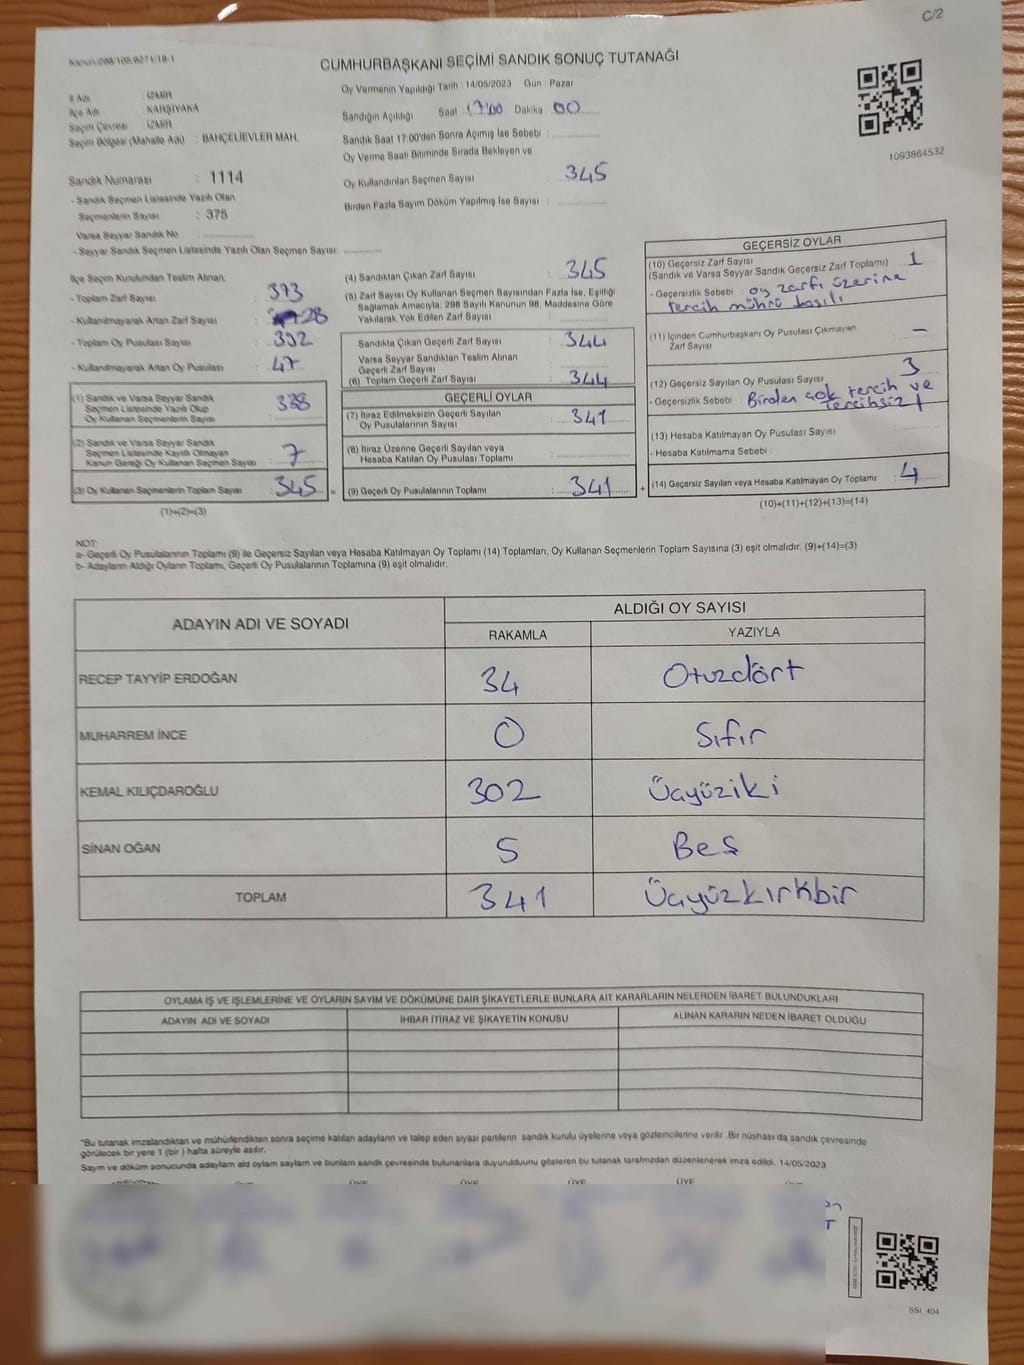 C/2
CUMHURBAŞKANI SEÇİMİ SANDIK SONUÇ TUTANAĞI
İl Adı : İZMİR
İlçe Adı : KARŞIYAKA
Seçim Çevresi : İZMİR
Seçim Bölgesi (Mahalle Adı) : BAHÇELİEVLER MAH.
Sandık Numarası : 1114
- Sandık Seçmen Listesinde Yazılı Olan
Seçmenlerin Sayısı : 375
Varsa Seyyar Sandık No :
- Seyyar Sandık Seçmen Listesinde Yazılı Olan Seçmen Sayısı:
Oy Vermenin Yapıldığı Tarih : 14/05/2023 Gün : Pazar
Sandığın Açıldığı Saat 17:00 Dakika 00
Sandık Saat 17:00'den Sonra Açımış İse Sebebi :
Oy Verme Saati Bitiminde Sırada Bekleyen ve
Oy Kullandırılan Seçmen Sayısı : 345
Birden Fazla Sayım Döküm Yapılmış İse Sayısı :
1093864532
İlçe Seçim Kurulundan Teslim Alınan;
- Toplam Zarf Sayısı : 373
- Kullanılmayarak Artan Zarf Sayısı : 28
- Toplam Oy Pusulası Sayısı : 392
- Kullanılmayarak Artan Oy Pusulası : 47
(1) Sandık ve Varsa Seyyar Sandık
Seçmen Listesinde Yazılı Olup
Oy Kullanan Seçmenlerin Sayısı : 338
(2) Sandık ve Varsa Seyyar Sandık
Seçmen Listesinde Kayıtlı Olmayan
Kanun Gereği Oy Kullanan Seçmen Sayısı : 7
(3) Oy Kullanan Seçmenlerin Toplam Sayısı : 345 =
(1)+(2)=(3)
(4) Sandıktan Çıkan Zarf Sayısı : 345
(5) Zarf Sayısı Oy Kullanan Seçmen Sayısından Fazla İse, Eşitliği
Sağlamak Amacıyla, 298 Sayılı Kanunun 98. Maddesine Göre
Yakılarak Yok Edilen Zarf Sayısı :
Sandıkta Çıkan Geçerli Zarf Sayısı : 344
Varsa Seyyar Sandıktan Teslim Alınan
Geçerli Zarf Sayısı :
(6) Toplam Geçerli Zarf Sayısı : 344
GEÇERLİ OYLAR
(7) İtiraz Edilmeksizin Geçerli Sayılan
Oy Pusulalarının Sayısı : 341
(8) İtiraz Üzerine Geçerli Sayılan veya
Hesaba Katılan Oy Pusulası Toplamı :
(9) Geçerli Oy Pusulalarının Toplamı : 341 +
GEÇERSİZ OYLAR
(10) Geçersiz Zarf Sayısı : 1
(Sandık ve Varsa Seyyar Sandık Geçersiz Zarf Toplamı)
- Geçersizlik Sebebi : oy zarfı üzerine
tercih mührü basılı
(11) İçinden Cumhurbaşkanı Oy Pusulası Çıkmayan
Zarf Sayısı : -
(12) Geçersiz Sayılan Oy Pusulası Sayısı : 3
- Geçersizlik Sebebi : Birden çok tercih ve
tercihsiz
(13) Hesaba Katılmayan Oy Pusulası Sayısı :
- Hesaba Katılmama Sebebi :
(14) Geçersiz Sayılan veya Hesaba Katılmayan Oy Toplamı : 4
(10)+(11)+(12)+(13)=(14)
NOT:
a- Geçerli Oy Pusulalarının Toplamı (9) ile Geçersiz Sayılan veya Hesaba Katılmayan Oy Toplamı (14) Toplamları, Oy Kullanan Seçmenlerin Toplam Sayısına (3) eşit olmalıdır. (9)+(14)=(3)
b- Adayların Aldığı Oyların Toplamı, Geçerli Oy Pusulalarının Toplamına (9) eşit olmalıdır.
ADAYIN ADI VE SOYADI
ALDIĞI OY SAYISI
RAKAMLA YAZIYLA
RECEP TAYYİP ERDOĞAN 34 Otuzdört
MUHARREM İNCE 0 Sıfır
KEMAL KILIÇDAROĞLU 302 Üçyüziki
SİNAN OĞAN 5 Beş
TOPLAM 341 Üçyüzkırkbir
OYLAMA İŞ VE İŞLEMLERİNE VE OYLARIN SAYIM VE DÖKÜMÜNE DAİR ŞİKAYETLERLE BUNLARA AİT KARARLARIN NELERDEN İBARET BULUNDUKLARI
ADAYIN ADI VE SOYADI İHBAR İTİRAZ VE ŞİKAYETİN KONUSU ALINAN KARARIN NEDEN İBARET OLDUĞU
"Bu tutanak imzalandıktan ve mühürlendikten sonra seçime katılan adayların ve talep eden siyasi partilerin sandık kurulu üyelerine veya gözlemcilerine verilir .Bir nüshası da sandık çevresinde
görülecek bir yere 1 (bir ) hafta süreyle asılır.
Sayım ve döküm sonucunda adayların ald oylam sayların ve bunların sandık çevresinde bulunanlara duyurulduunu gösteren bu tutanak tarafmzdan düzenlenerek imza edildi. 14/05/2023
ÜYE ÜYE ÜYE ÜYE ÜYE
SSI_404